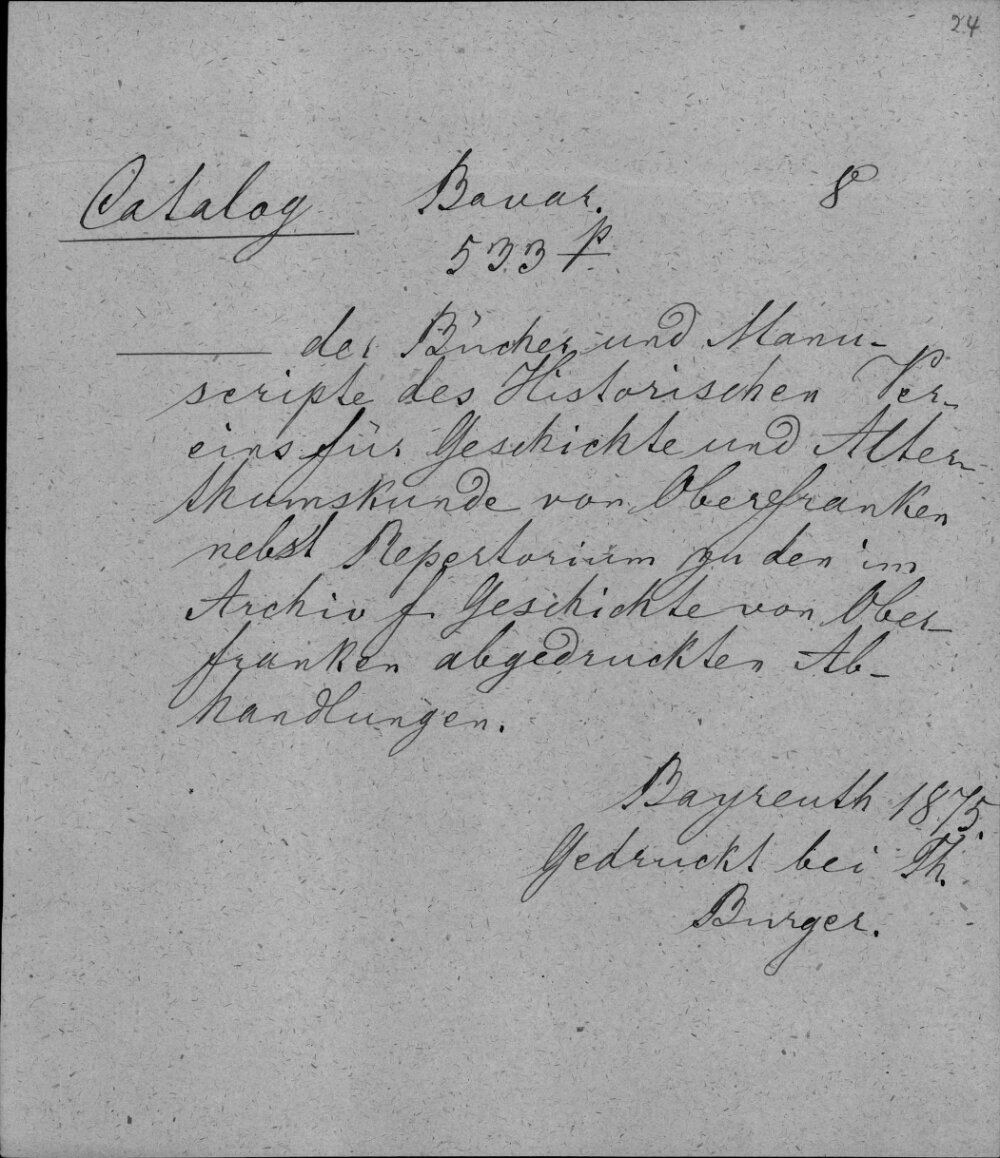 24
Catalog Bavar. 8°
533 p
— der Bücher und Manu-
scripte des Historischen Ver-
eins für Geschichte und Alter-
thumskunde von Oberfranken
nebst Repertorium zu den im
Archiv f. Geschichte von Ober-
franken abgedruckten Ab-
handlungen.
Bayreuth 1875.
Gedruckt bei Th.
Burger.